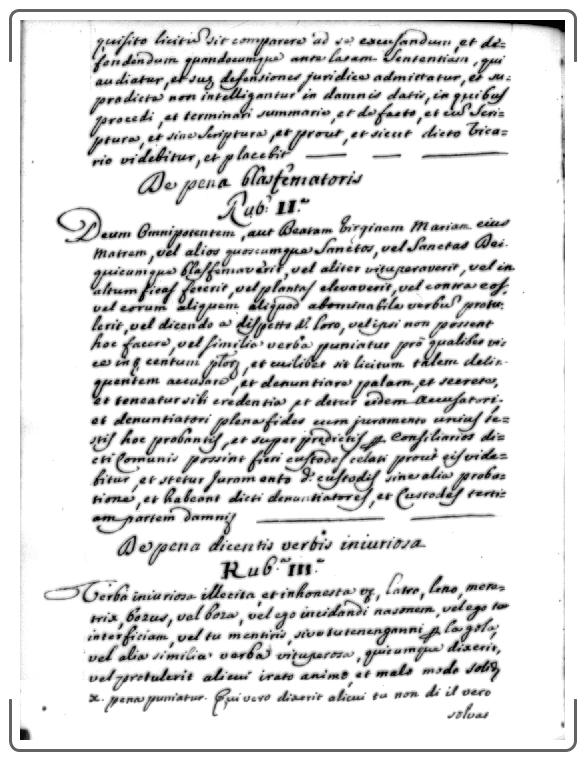 quisito licitũ sit comparere ad se excusandum, et de=
fendendum quandocumque ante latam Sententiam, qui
audiatur, et suę defensiones juridice admittatur, et su=
pradicta non intelligantur in damnis datis, in quibus
procedi, et terminari summarie, et de facto, et cũ Scri=
ptura, et sine Scriptura, et prout, et sicut dicto Vica=
rio videbitur, et placebit
De pena blasfematoris
Rub. II.
Deum Omnipotentem, aut Beatam Virginem Mariam eius
Matrem, vel alios quoscumque Sanctos, vel Sanctas Dei
quicumque blasfemaverit, vel aliter vituperaverit, vel in
altum ficas fecerit, vel plantas elevaverit, vel contra eos,
vel eorum aliquem aliquod abominabile verbũ protu=
lerit, vel dicendo a dispetto di loro, vel ipsi non possent
hoc facere, vel similia verba puniatur pro qualibet vi=
ce in centum et cuilibet sit licitum talem delin=
quentem accusare, et denuntiare palam, et secrete,
et teneatur sibi credentia, et detur eidem Accusatori,
et denuntiatori plena fides cum juramento unius te=
stis hoc probantis, et super predictis Consiliarios di=
cti Comunis possint fieri custodes celati prout eis vide=
bitur, et stetur Juramento d. custodis sine alia proba=
tione, et habeant dicti denuntiatores, et Custodes terti=
am partem damnis
De pena dicentis verbis iniuriosa
Rub. III.
Verba iniuriosa illecita, et inhonesta latro, leno, mere=
trix, bozus, vel boza, vel ego incidandi nasonem, vel ego te
interficiam, vel tu mentiris, sive tu tenenganni la gola,
vel alia similia verba vituperosa, quicumque dixerit,
vel protulerit alicui irato animo, et malo modo
x. pena puniatur. Qui vero dixerit alicui tu non di il vero
solvat